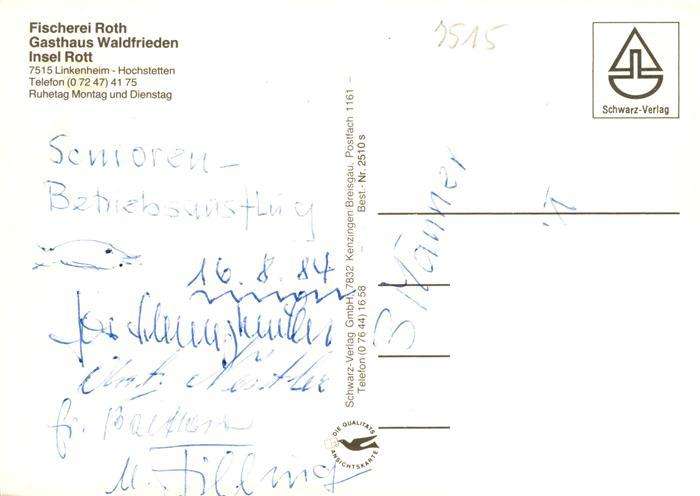 Fischerei Roth
Gasthaus Waldfrieden
Insel Rott
7515 Linkenheim - Hochstetten
Telefon (0 72 47) 41 75
Ruhetag Montag und Dienstag
Senioren-
Betriebsausflug
16.8.84
7515
Schwarz-Verlag
Schwarz-Verlag GmbH, 7832 Kenzingen Breisgau, Postfach 1161 -
Telefon (0 76 44) 16 58 - Best.-Nr. 2510 s
3 Männer
DIE QUALITÄTS
ANSICHTSKARTE